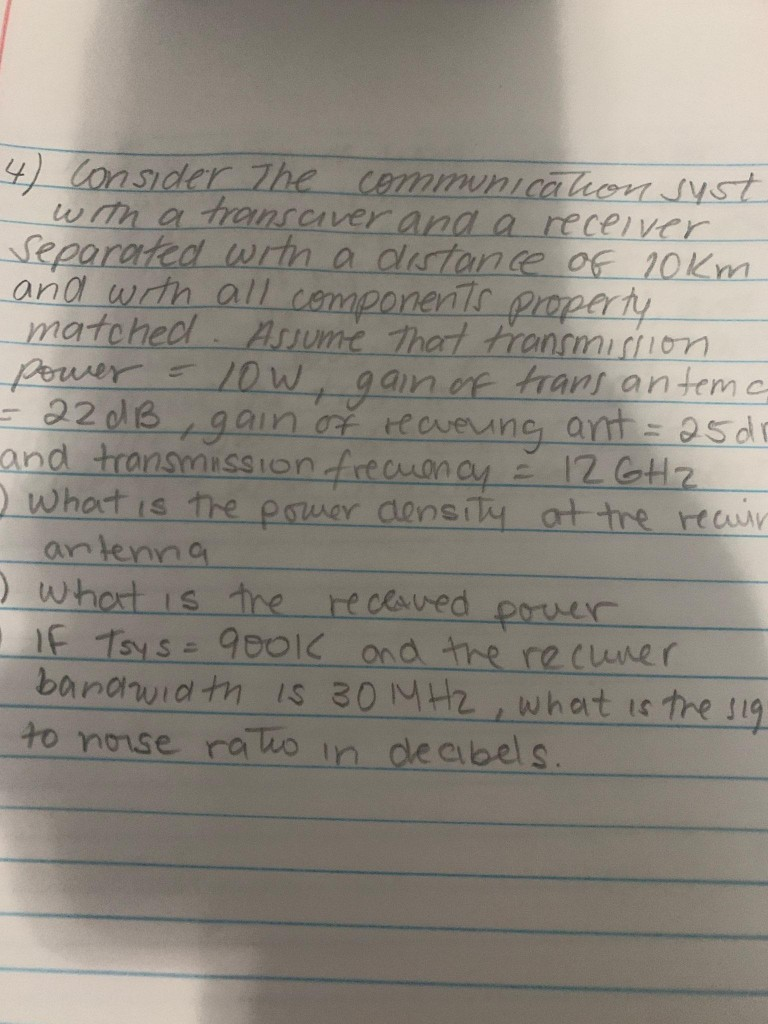 4) Consider The communication syst
with a transciver and a receiver
Separated with a distance of 10Km
and with all components property
matched. Assume that transmission
power = 10W, gain of trans antem
= 22dB, gain of receveing ant = 25d
and transmission frecuency = 12 GHz
) What is the power density at the recuir
antenna
) What is the received power
) IF Tsys = 900K and the recuver
bandwidth is 30 MHz, what is the sig
to noise ratio in decibels.